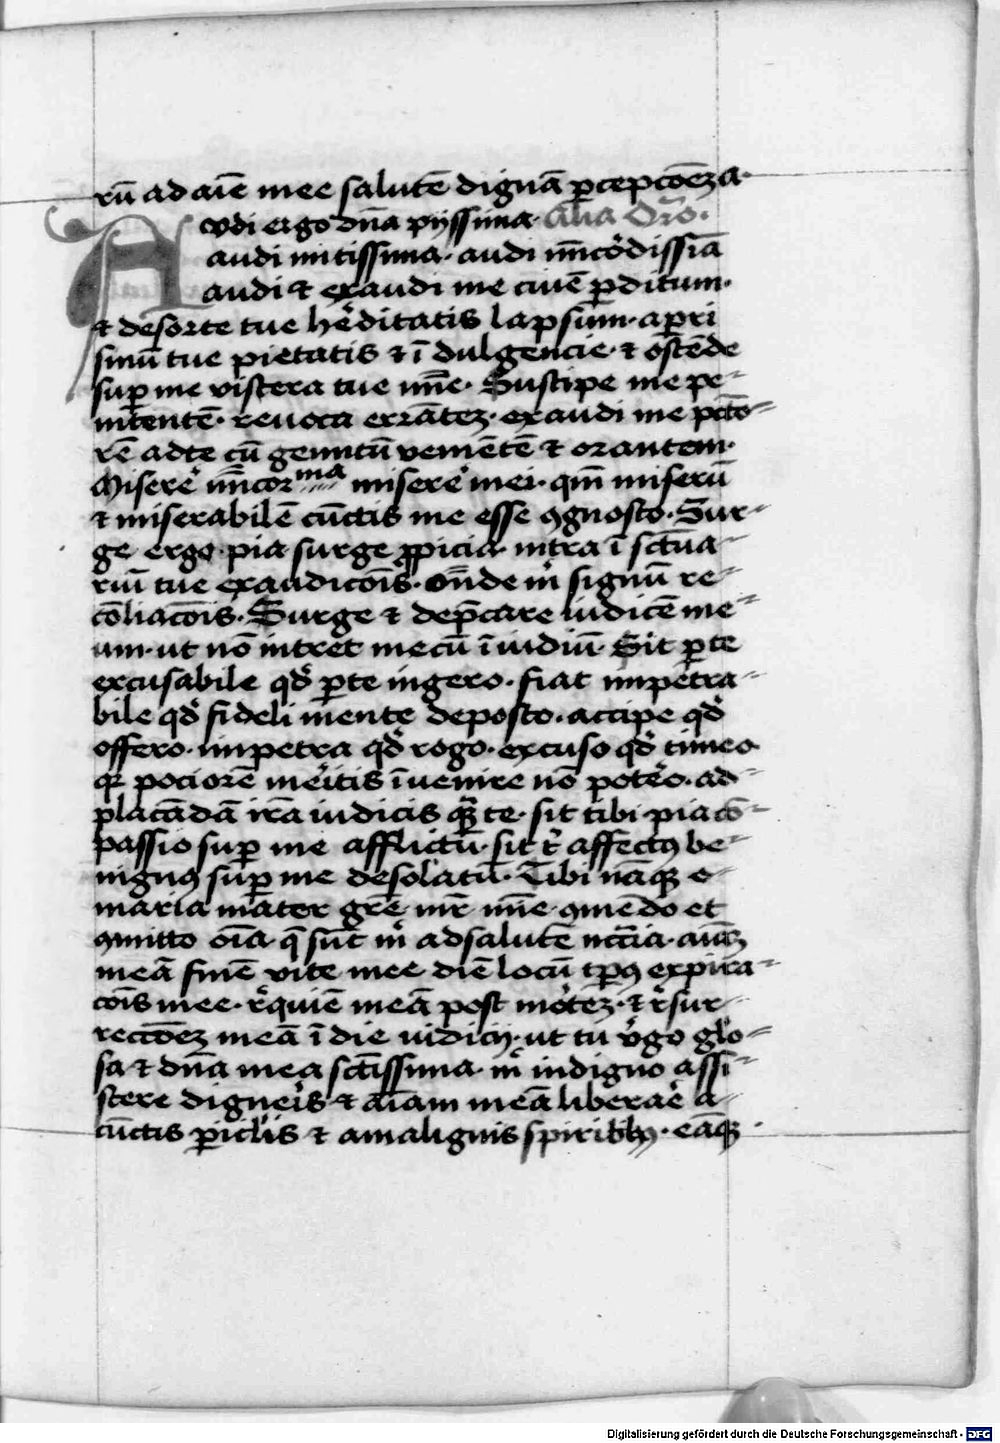 rū ad aīe mee salutē dignā ꝑcepcōeꝫ a.
Avdi ergo dn̄a pijssima. Alia Orō.
audi mitissima. audi mīcōdissīa
audi ⁊ exaudi me ciuē ꝑditum.
⁊ desorte tue hēditatis lapsum. aperi
sinū tue pietatis ⁊ ī dulgencie. ⁊ ostēde
suꝑ me viscera tue mīe. Suscipe me pe-
nitentē. reuoca errāteꝫ. exaudi me pctō-
rē adte cū gemitū veniētē ⁊ orantem.
Miserē mīcorma miserē mei. qm̄ miserū
⁊ miserabilē cūctis me esse ꝯgnosco. Sur-
ge ergo pia surge ꝓpicia. intra ī sctua-
riū tue exaudicōis. On̄de m̄ signū re-
cōliacōis. Surge ⁊ dep̄care iudicē me-
um. ut nō intret mecū ī iudiū. Sit ꝑ te
excusabile qd̄ ꝑ te ingero. fiat impetra-
bile qd̄ fideli mente deposco. accipe qd̄
offero. impetra qd̄ rogo. excuso qd̄ timeo
qr pociorē mēitis īuenire nō potēo. ad-
placādā irā iudicis qꝫ te. sit tibi pia cō-
passio suꝑ me afflictū. sit t̄ affectꝰ be-
nignꝰ suꝑ me desolatū. Tibi nāqꝫ o
maria mater grē mr̄ mīe ꝯmēdo et
ꝯmitto oīa. q̄ sūt m̄ ad salutē nc̄cīa.
meā finē vite mee diē locū tp̄ꝰ expira-
cōis mee. r̄quiē meā post mōteꝫ. ⁊ r̄sur-
reccōeꝫ meā ī die iudicij. ut tu v̄go glō-
sa ⁊ dn̄a mea sctīssima. m̄ indigno assi-
stere digneīs ⁊ aīam meā liberaē a-
cūctis ꝑiclīs ⁊ amalignis spiritibꝰ. eāqꝫ
Digitalisierung gefördert durch die Deutsche Forschungsgemeinschaft - DFG